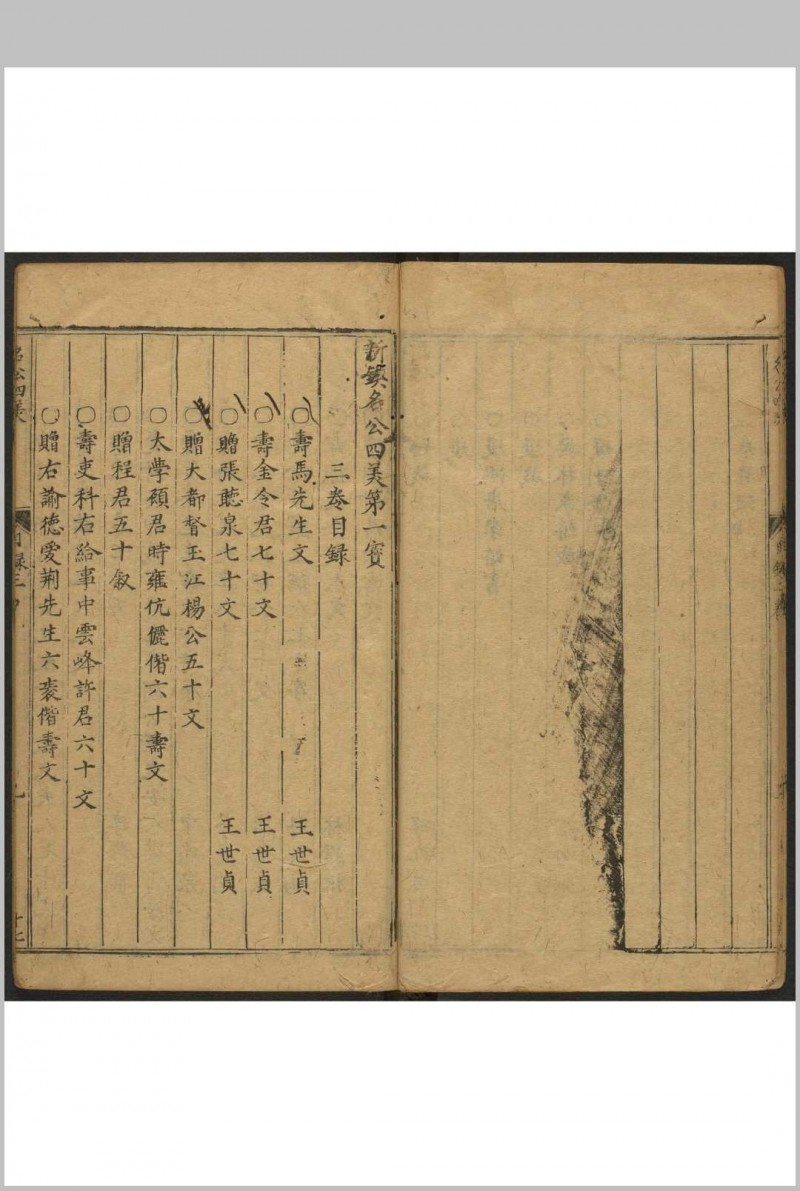 新鍥名公四美第一寶
三卷目録
〇壽馬先生文 王世貞
〇壽金令君七十文 王世貞
〇贈張聽泉七十文 王世貞
〇贈大都督玉江楊公五十文
〇太學頋君時雍伉儷偕六十壽文
〇贈程君五十叙
〇壽吏科右給事中雲峰許君六十文
〇贈右諭德愛荆先生六袠偕壽文
名公四美
目録三